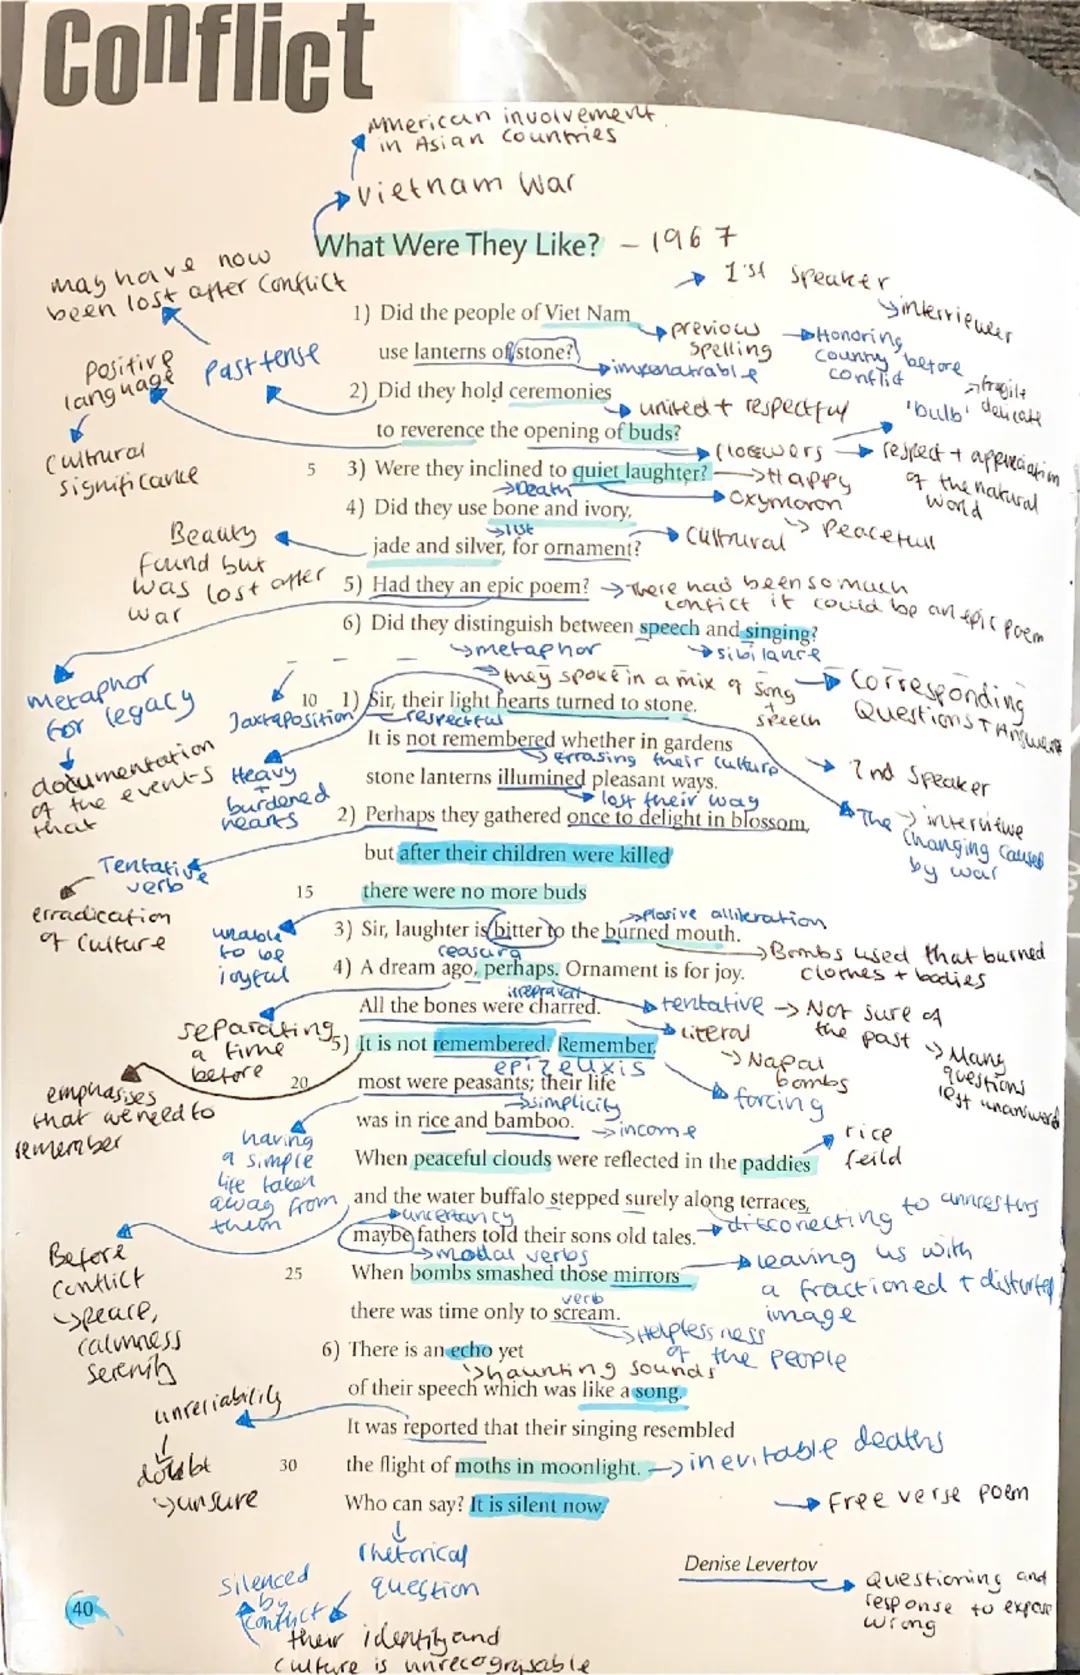 Conflict
American involvement
in Asian Countries
Vietnam War
What Were They Like? - 1967
may have now
been lost after Conflict
1st Speaker
interviewer
1) Did the people of Viet Nam
previous
spelling
Honoring
country before
conflict
use lanterns of stone?
impenatrable
Positive
language
Past tense
2) Did they hold ceremonies
united + respectful
'bulb'
fragile
delicate
to reverence the opening of buds?
flowers
respect + appreciation
of the natural
world
Cultrural
significance
5 3) Were they inclined to quiet laughter?
Happy
Death
oxymoron
Peacefull
4) Did they use bone and ivory,
list
Beauty
found but
was lost after
war
jade and silver, for ornament?
Cultrural
5) Had they an epic poem?
There had been so much
conflict it could be an epic poem
6) Did they distinguish between speech and singing?
metaphor
sibilance
they spoke in a mix of song
+
speech
metaphor
for legacy
documentation
of the events
that
Corresponding
Questions + Answers
Juxtaposition
10 1) Sir, their light hearts turned to stone.
respectful
It is not remembered whether in gardens
errasing their culture
2nd Speaker
interviwe
Heavy
+
burdened
hearts
stone lanterns illumined pleasant ways.
lost their way
The
changing caused
by war
2) Perhaps they gathered once to delight in blossom,
Tentative
verb
erradication
of Culture
but after their children were killed
15 there were no more buds
plosive alliteration
unable
to be
joyful
3) Sir, laughter is bitter to the burned mouth.
Bombs used that burned
clothes + bodies
ceasura
4) A dream ago, perhaps. Ornament is for joy.
tentative
Not sure of
the past
Many
questions
left unanswerd
separating
a time
before
All the bones were charred.
literal
Napal
bombs
5) It is not remembered. Remember,
epizeuxis
forcing
emphasises
that we need to
remember
20 most were peasants; their life
simplicity
was in rice and bamboo.
income
having
a simple
life taken
away from
them
rice
feild
When peaceful clouds were reflected in the paddies
and the water buffalo stepped surely along terraces,
uncertancy
disconecting
to anncestors
maybe fathers told their sons old tales.
modal verbs
Before
Conflict
peace,
calmness
serenity
25 When bombs smashed those mirrors
leaving us with
a fractioned + disturted
image
verb
there was time only to scream.
Helplessness
of the People
6) There is an echo yet
haunting sounds
of their speech which was like a song.
unreliability
doubt
unsure
It was reported that their singing resembled
30 the flight of moths in moonlight.
inevitable deaths
Who can say? It is silent now.
Free verse poem
rhetorical
question
Denise Levertov
Questioning and
response to expose
wrong
silenced
by
conflict
their identity and
culture is unrecognisable
40